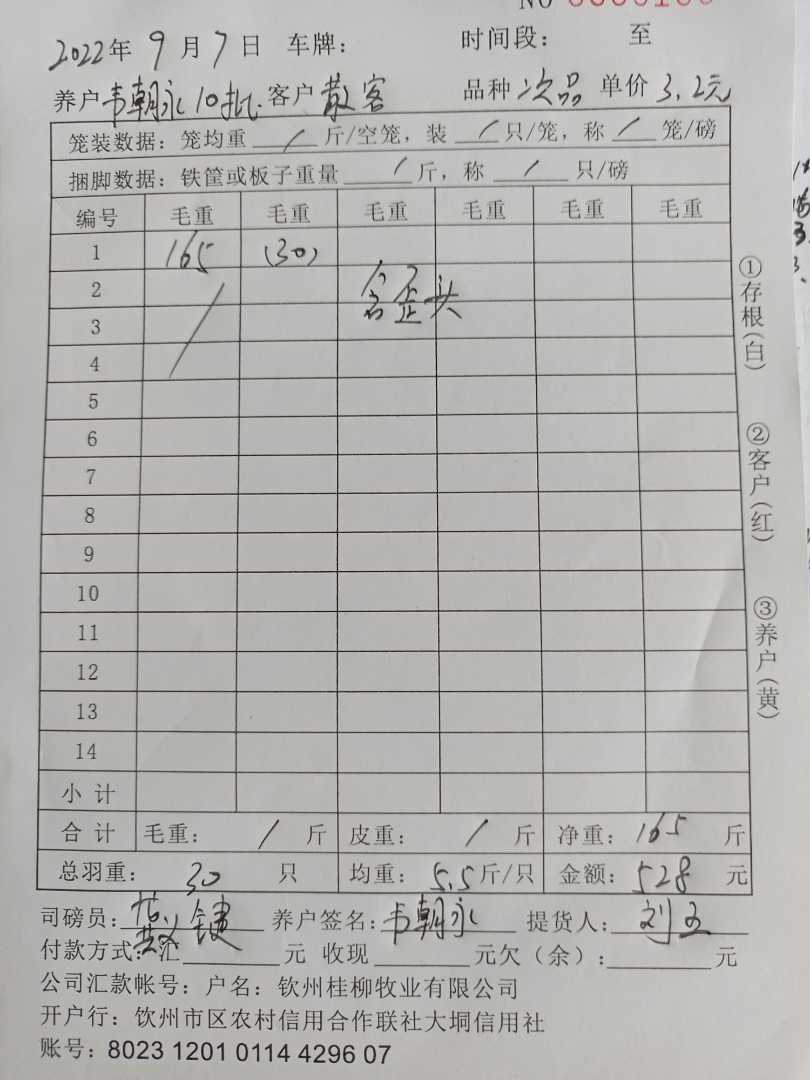 NO
2022年 9月7日 车牌： 时间段： 至
养户韦朝永10批. 客户散客 品种次品 单价3.2元
笼装数据：笼均重 / 斤/空笼，装 / 只/笼，称 / 笼/磅
捆脚数据：铁筐或板子重量 / 斤，称 / 只/磅
编号 毛重 毛重 毛重 毛重 毛重 毛重
1 165 (30)
2 含歪头
3
4
5
6
7
8
9
10
11
12
13
14
小计
合计 毛重： / 斤 皮重： / 斤 净重：165 斤
总羽重：30 只 均重：5.5斤/只 金额：528 元
司磅员： 键 养户签名：韦朝永 提货人：刘
付款方式：汇 元 收现 元欠（余）： 元
公司汇款帐号：户名：钦州桂柳牧业有限公司
开户行：钦州市区农村信用合作联社大垌信用社
账号：8023 1201 0114 4296 07
①存根(白)
②客户(红)
③养户(黄)